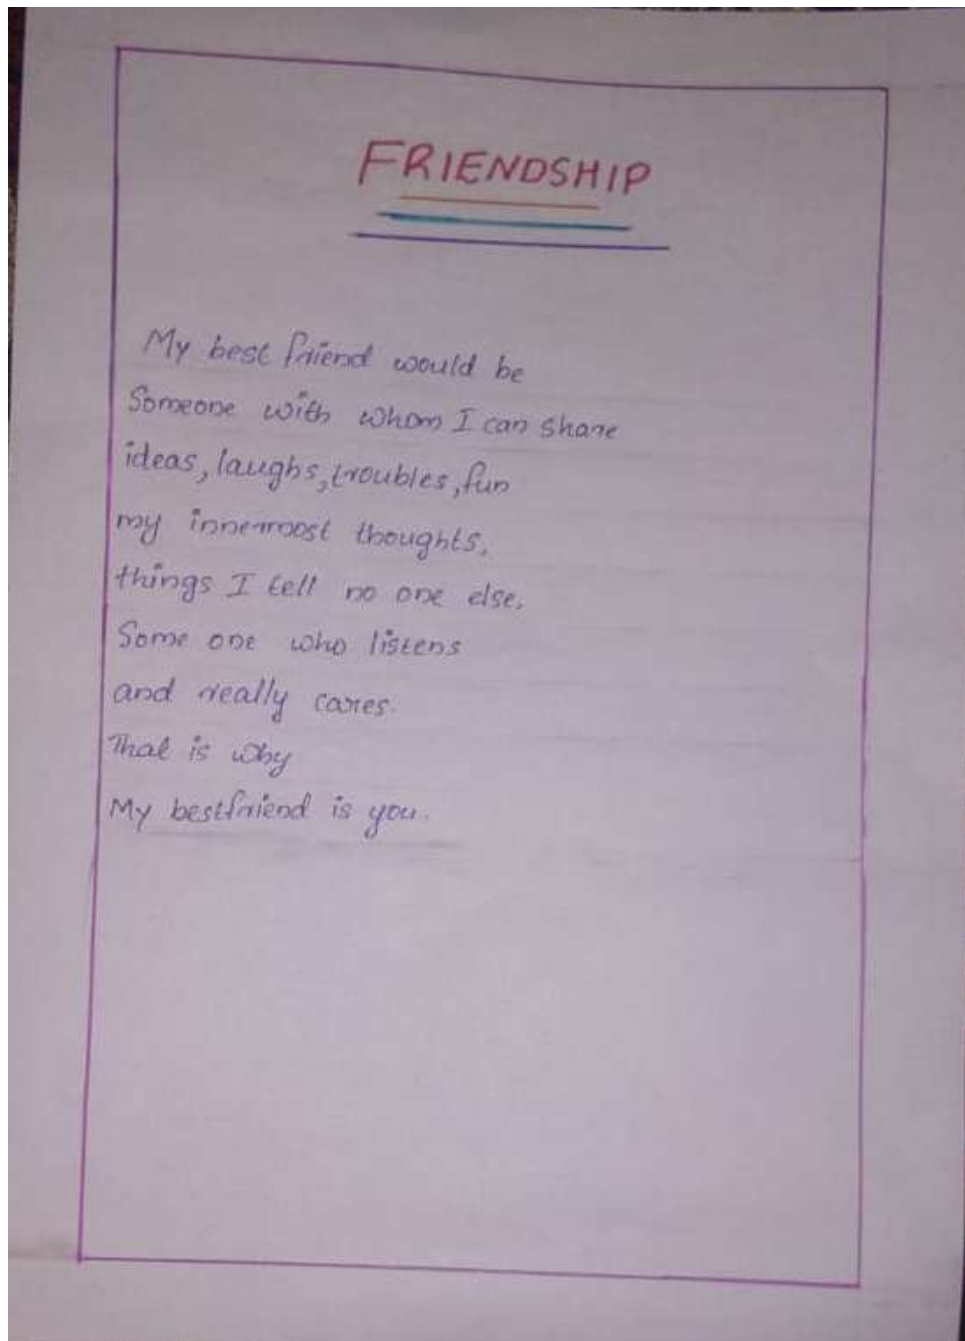 FRIENDSHIP
My best friend would be
Someone with whom I can share
ideas, laughs, troubles, fun
my innermost thoughts,
things I tell no one else,
Some one who listens
and really cares.
That is why
My bestfriend is you.